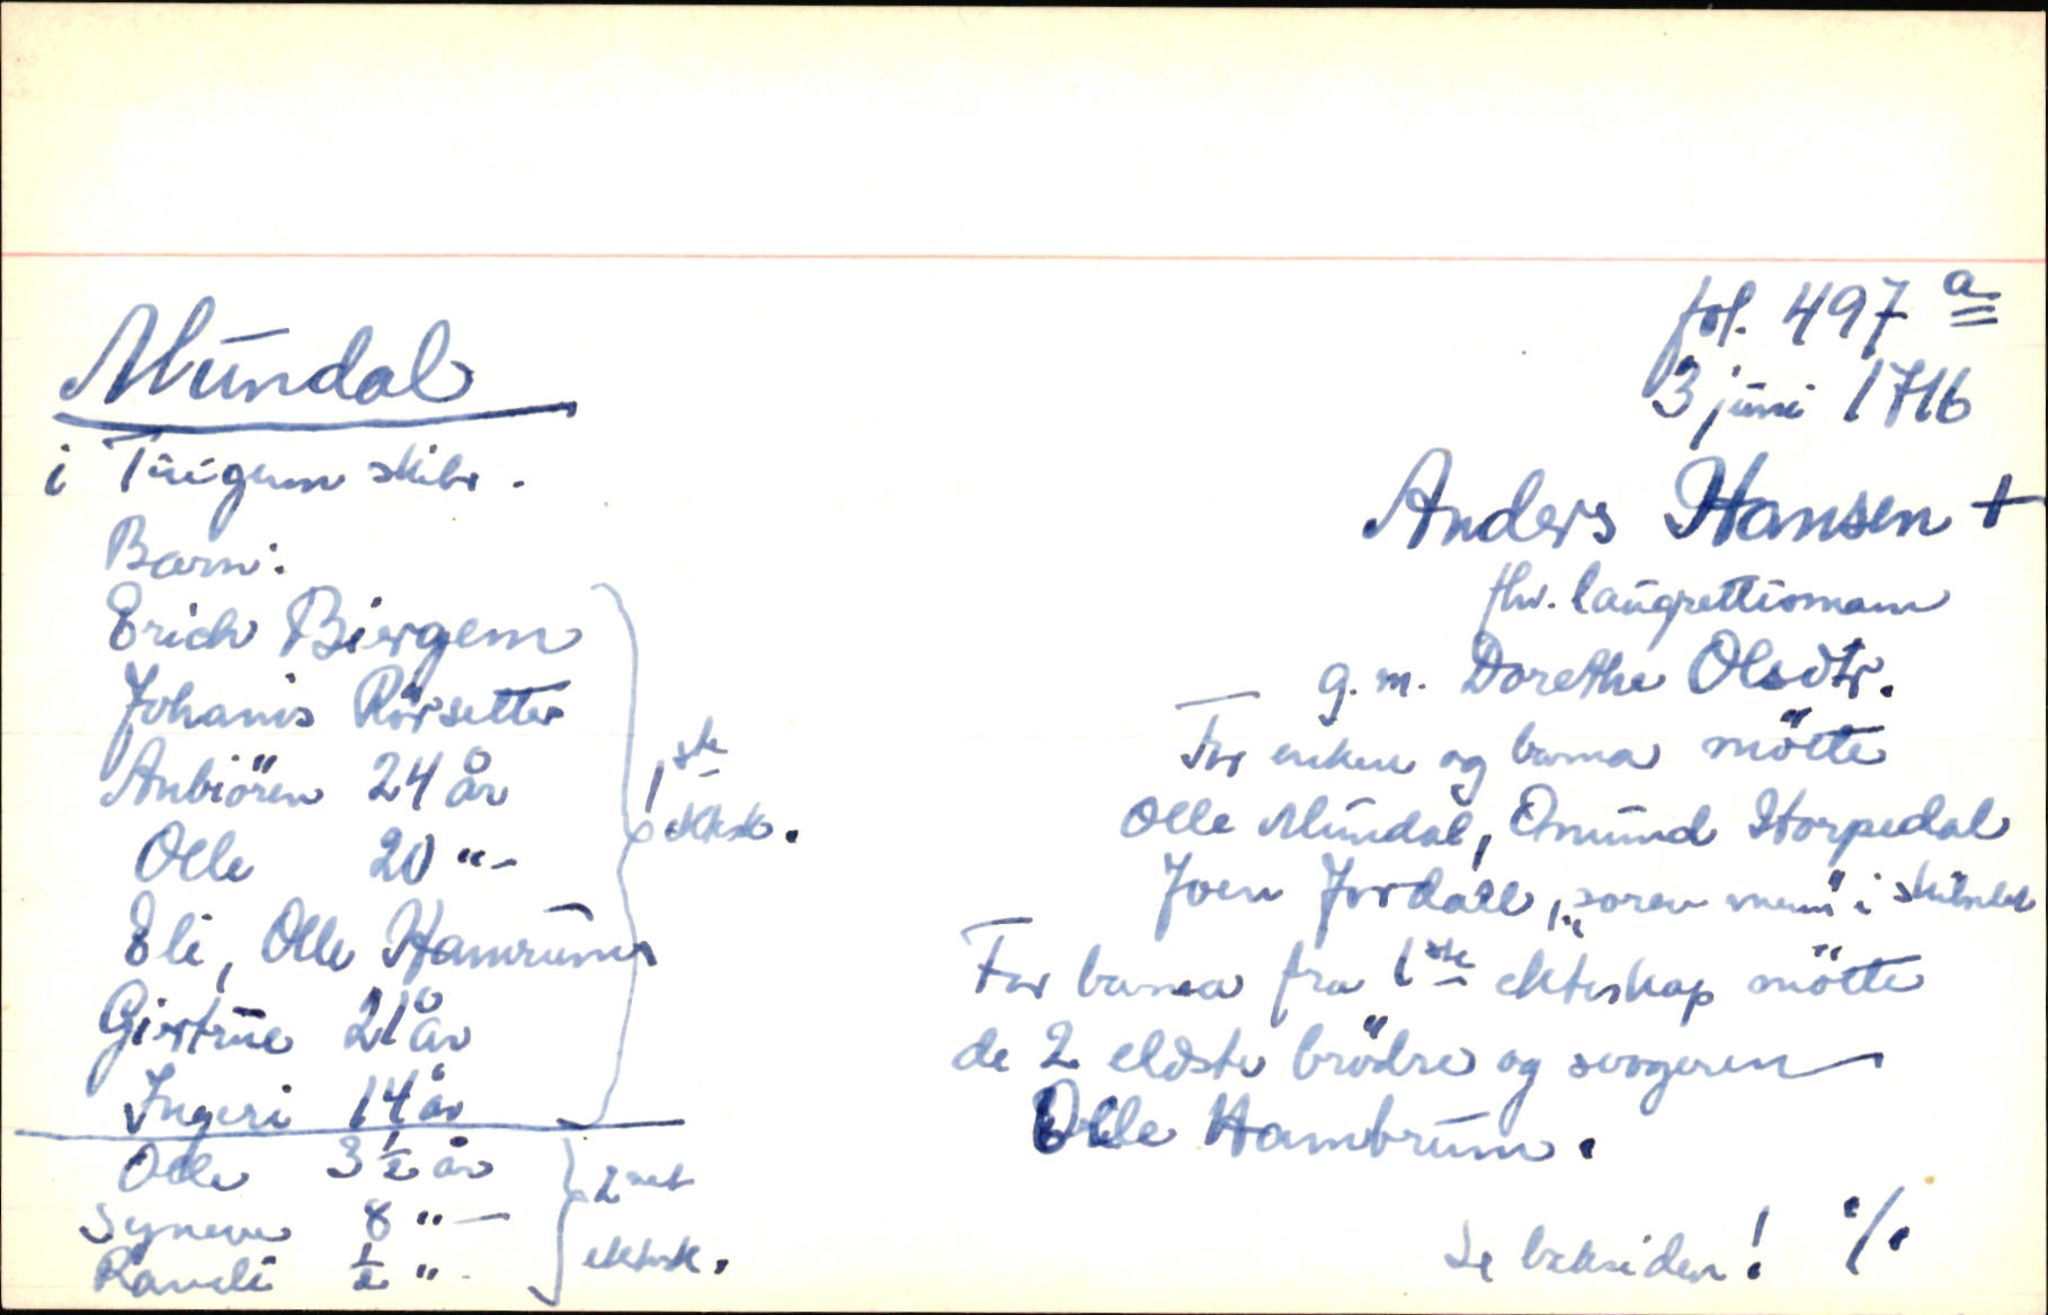 fol. 497 a
3 juni 1716
Mundal
i Tuigum skibr.
Anders Hansen +
fhv. laugrettismann
g. m. Dorethe Olsdtr.
For enken og barna mötte
Olle Mundal, Omund Horpedal
Joen Jordall, "soren mem" i skibredet
For barna fra 1ste ekteskap mötte
de 2 eldste brödre og svogeren
Olle Hambrum.
Se baksiden! ·/·
Barn:
Erich Biergem
Johanis Rörsetter
Anbiören 24 år
Olle 20 "-
Eli, Olle Hamrum
Giertrue 21 år
Ingeri 14 år
1ste ektsk.
Olle 3 1/2 år
Syneve 8 "-
Randi 1/2 "
2net ektesk.